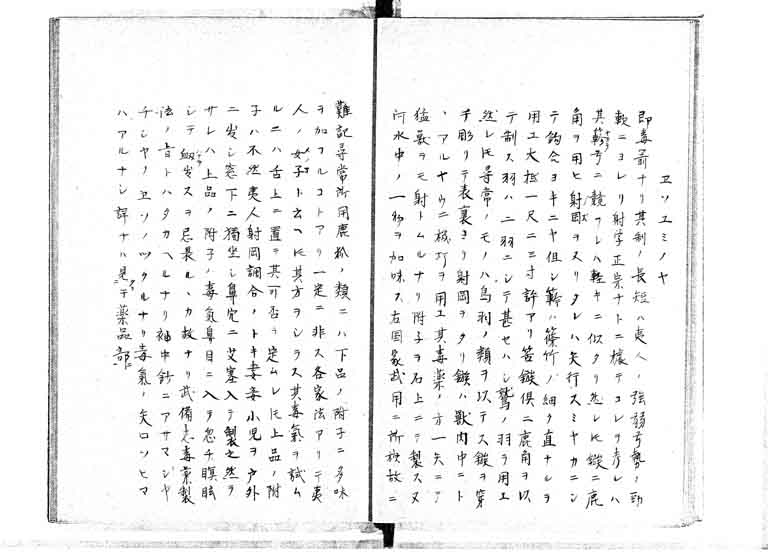 ヱソユミノヤ
即毒箭ナリ其制ノ長短ハ夷人ノ強弱弓勢ノ勁
軟ニヨレリ射学正宗ナトニ據テコレヲ考レハ
其簳弓ニ競フレハ軽キニ似タリ然レ𪜈鏃ニ鹿
角ヲ用ヒ射罔ヲスリタレハ矢行スミヤカニシ
テ的合ヨキニヤ但シ簳ハ篠竹ノ細ク直ナルヲ
用ユ大抵一尺二三寸許アリ筈鏃倶ニ鹿角ヲ以
テ制ス羽ハ二羽ニシテ甚セハシ鷲ノ羽ヲ用ユ
然レ𪜈尋常ノモノハ鳥羽ノ類ヲ以テス鏃ヲ穿
チ彫リテ表裏ヨリ射罔ヲヌリ鏃ハ獣肉中ニト
ヽアルヤウニ械巧ヲ用ユ其毒薬ノ方一矢ニテ
猛獣ヲモ射トムルナリ附子ヲ石上ニテ製ス又
河水中ノ一物ヲ加味ス右国家武用ニ所秘故ニ
難記尋常所用鹿
ヲ加フルコトアリ一定ニ非ス各家法アリテ夷
人ノ女子ト云ヘ𪜈其方ヲシラス其毒氣ヲ試ム
ルニハ舌上ニ置テ其可否ヲ定ムレ𪜈上品ノ附
子ハ不然夷人射罔調合ノトキ妻妾小児ヲ戸外
ニ出シ窓下ニ獨坐シ鼻穴ニ艾塞入テ製之然ラ
サレハ上品ノ附子ノ毒氣鼻目ニ入ヲ忽チ瞑眩
シテ衂出スヲ忌畏ルヽカ故ナリ武備志毒薬製
法ノ旨トハタカヘルナリ袖中鈔ニアサマシヤ
チシヤノヱソノツクルナリ毒氣ノ矢ロソヒマ
ハアルナシ詳ナハ是ニテ薬品部ニ